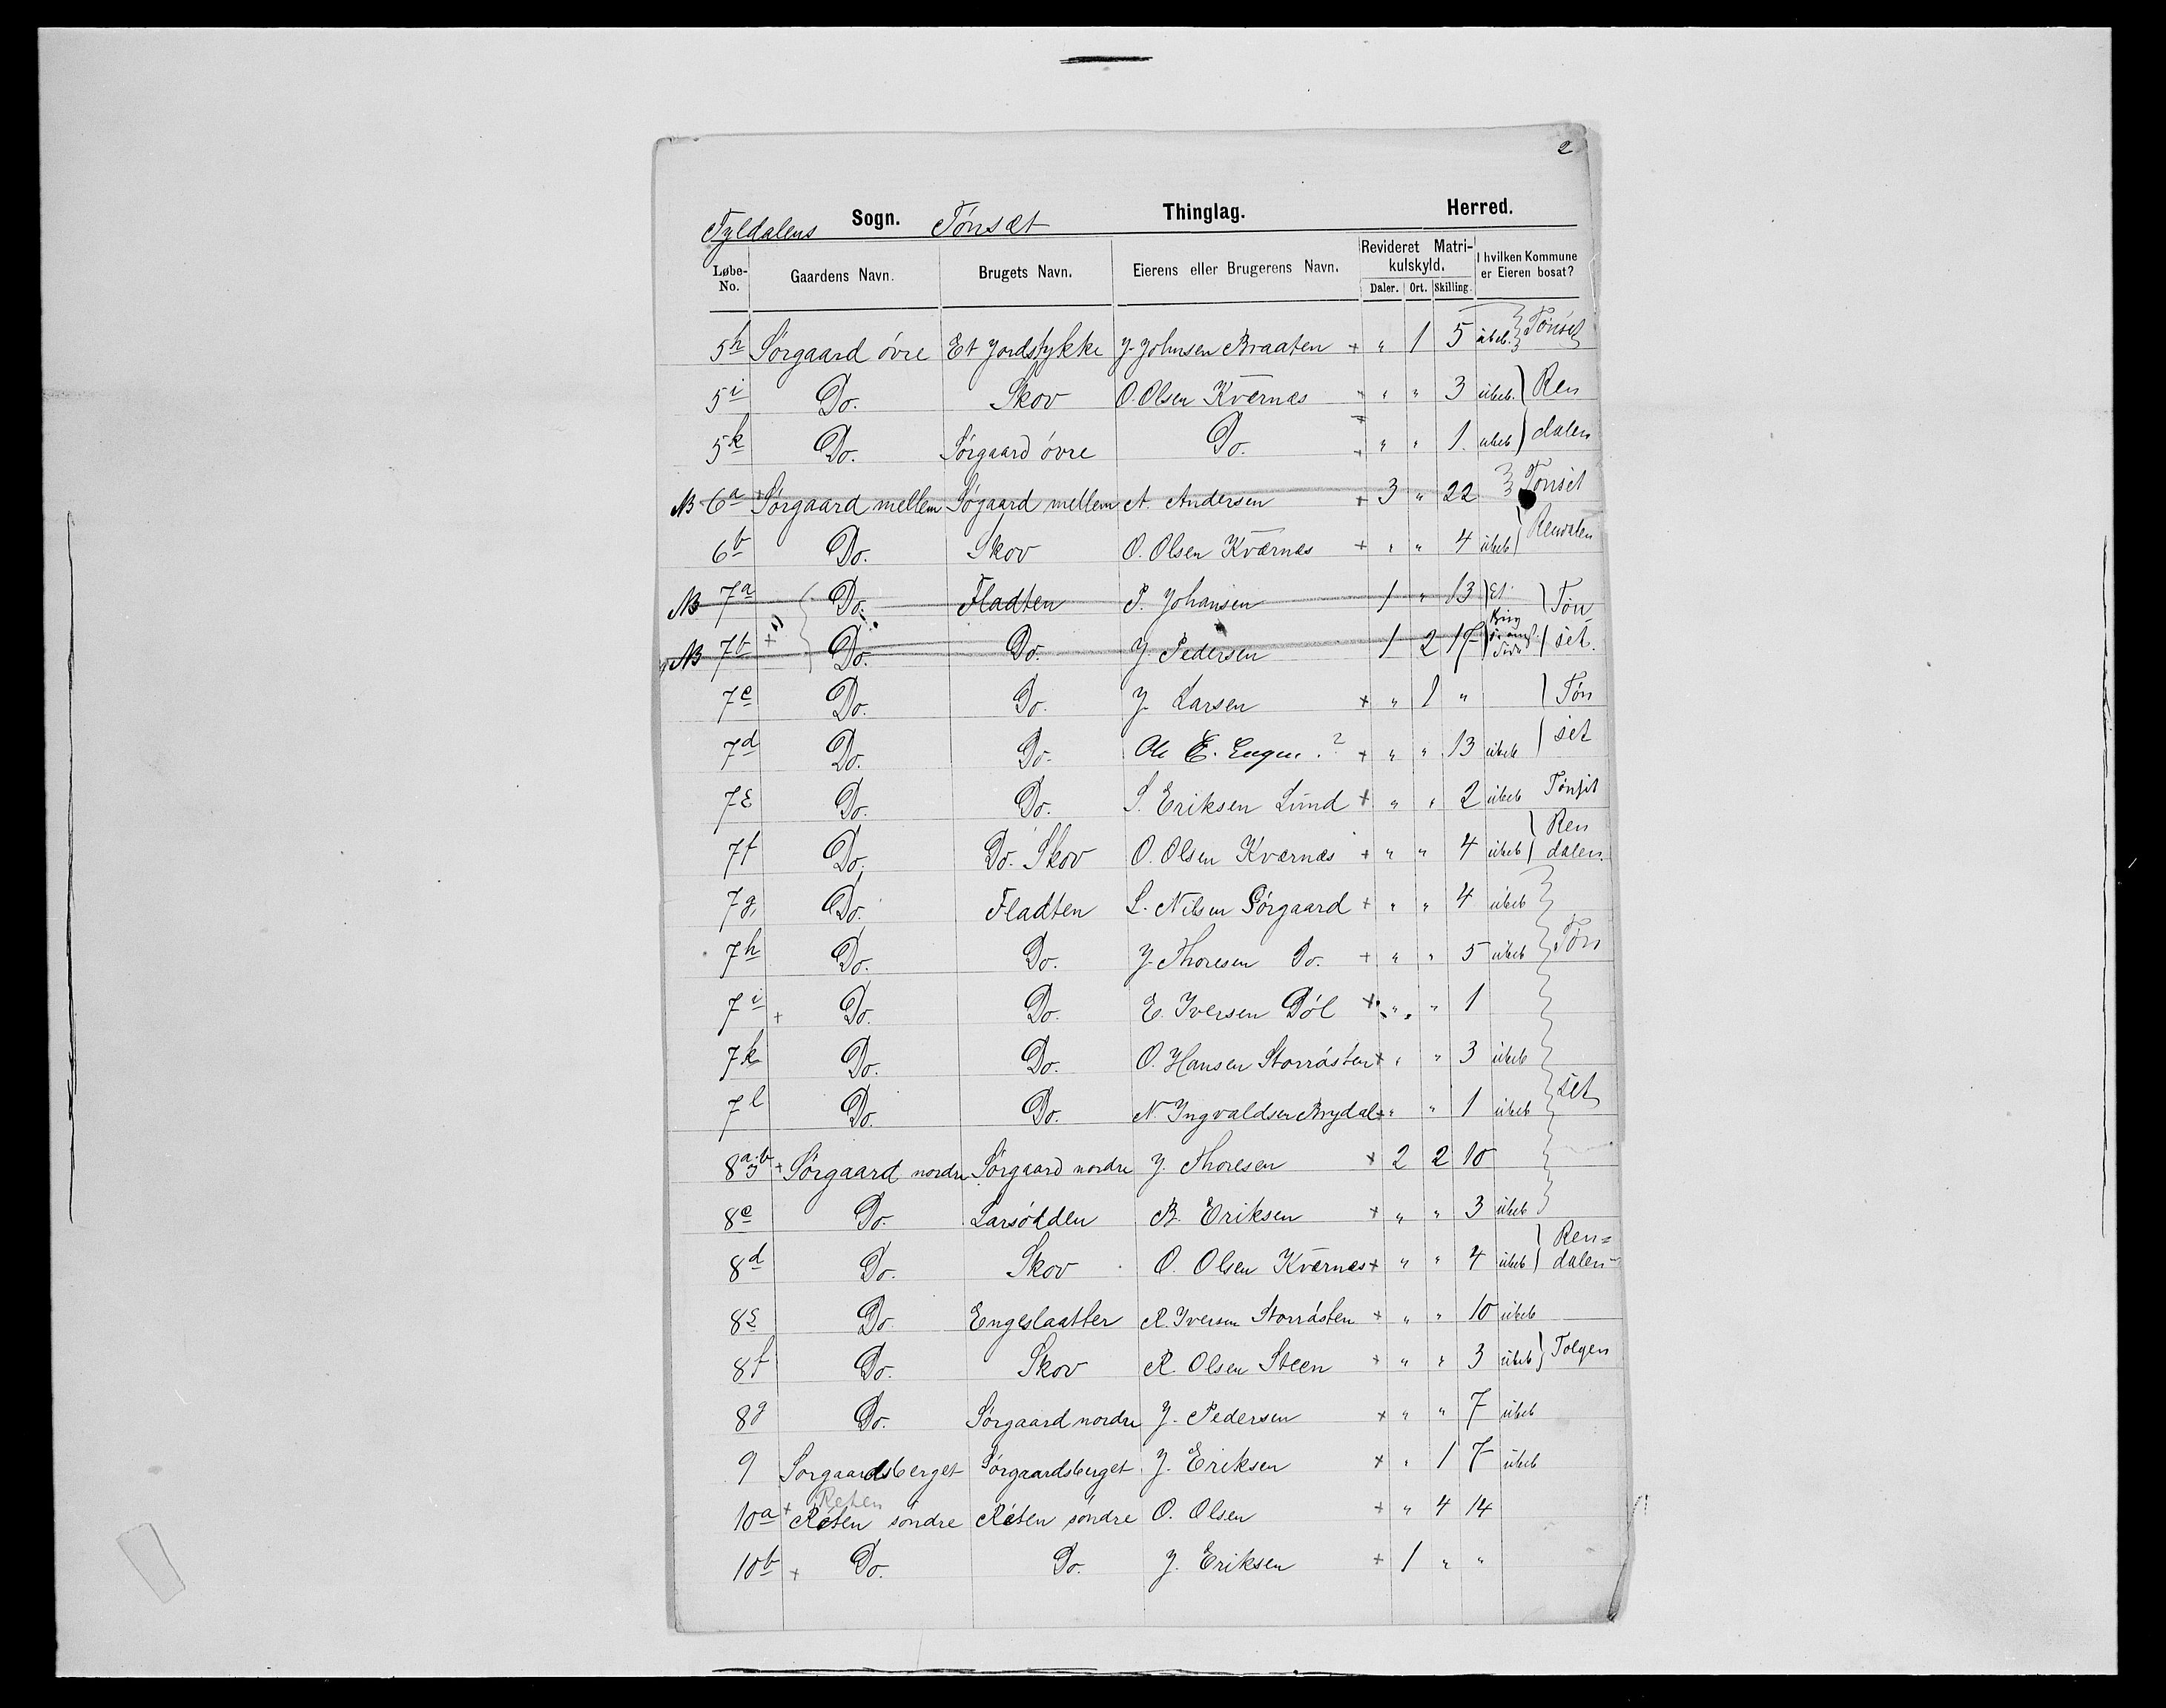 2
Tyldalens Sogn. Tønsæt Thinglag. Herred.
Løbe-No. Gaardens Navn. Brugets Navn. Eierens eller Brugerens Navn. Revideret Matrikulskyld. I hvilken Kommune er Eieren bosat?
Daler. Ort. Skilling.
5h Sørgaard øvre Et Jordstykke J. Johnsen Braaten + " 1 5 ubeb. Tønset
5i Do. Skov O. Olsen Kværnæs + " " 3 ubeb. Ren
5k Do. Sørgaard øvre Do. + " " 1. ubeb dalen
NB 6a + Sørgaard mellem Søgaard mellem A. Andersen + 3 " 22 Tønset
6b Do. Skov O. Olsen Kværnæs + " " 4 ubeb Rendalen
NB 7a Do. Fladten P. Johansen 1 " 13 Et Tøn
NB 7b + 1) Do. Do. J. Pedersen 1 2 17 Brug set.
7c Do. Do. J. Larsen + " 1 " Tøn
7d Do. Do. Ole E. Engen.? + " " 13 ubeb set
7e Do. Do. S. Eriksen Lund + " " 2 ubeb Tønset
7f Do. Do. Skov O. Olsen Kværnæs + " " 4 ubeb Rendalen.
7g, Do. Fladten L. Nilsen Sørgaard + " " 4 ubeb
7h Do. Do. J. Thoresen Do. + " " 5 ubeb Tøn
7i + Do. Do. E. Iversen Døl + " " 1
7k Do. Do. O. Hansen Storrøsten + " " 3 ubeb
7l Do. Do. N. Ingvaldsen Brydal + " " 1 ubeb set
8a.b + Sørgaard nordre Sørgaard nordre J. Thoresen + 2 2 10
8c Do. Larsødden B. Eriksen + " " 3 ubeb
8d Do. Skov O. Olsen Kværnæs + " " 4 ubeb Ren=dalen
8e Do. Engeslaatter R. Iversen Storrøsten + " " 10 ubeb
8f Do. Skov R. Olsen Steen + " " 3 ubeb Tolgen
8g Do. Sørgaard nordre J. Pedersen + " " 7 ubeb
9 Sørgaardsberget Sørgaardsberget J. Eriksen + " 1 7 ubeb
Reten
10a + Røten søndre Røten søndre O. Olsen + " 4 14
10b + Do. Do. J. Eriksen + 1 " "